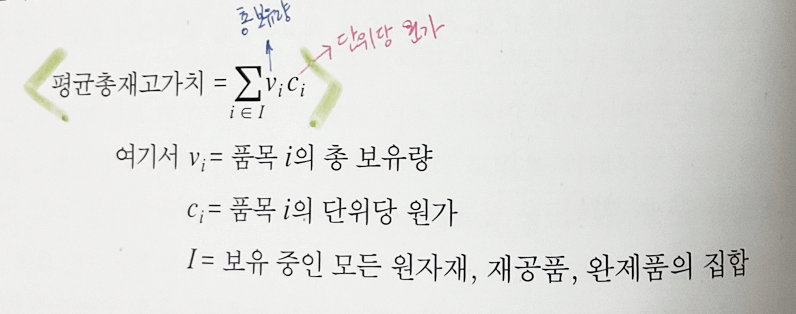 총 보유량
단위당 원가
평균총재고가치 = ∑ vᵢcᵢ
i ∈ I
여기서 vᵢ = 품목 i의 총 보유량
cᵢ = 품목 i의 단위당 원가
I = 보유 중인 모든 원자재, 재공품, 완제품의 집합